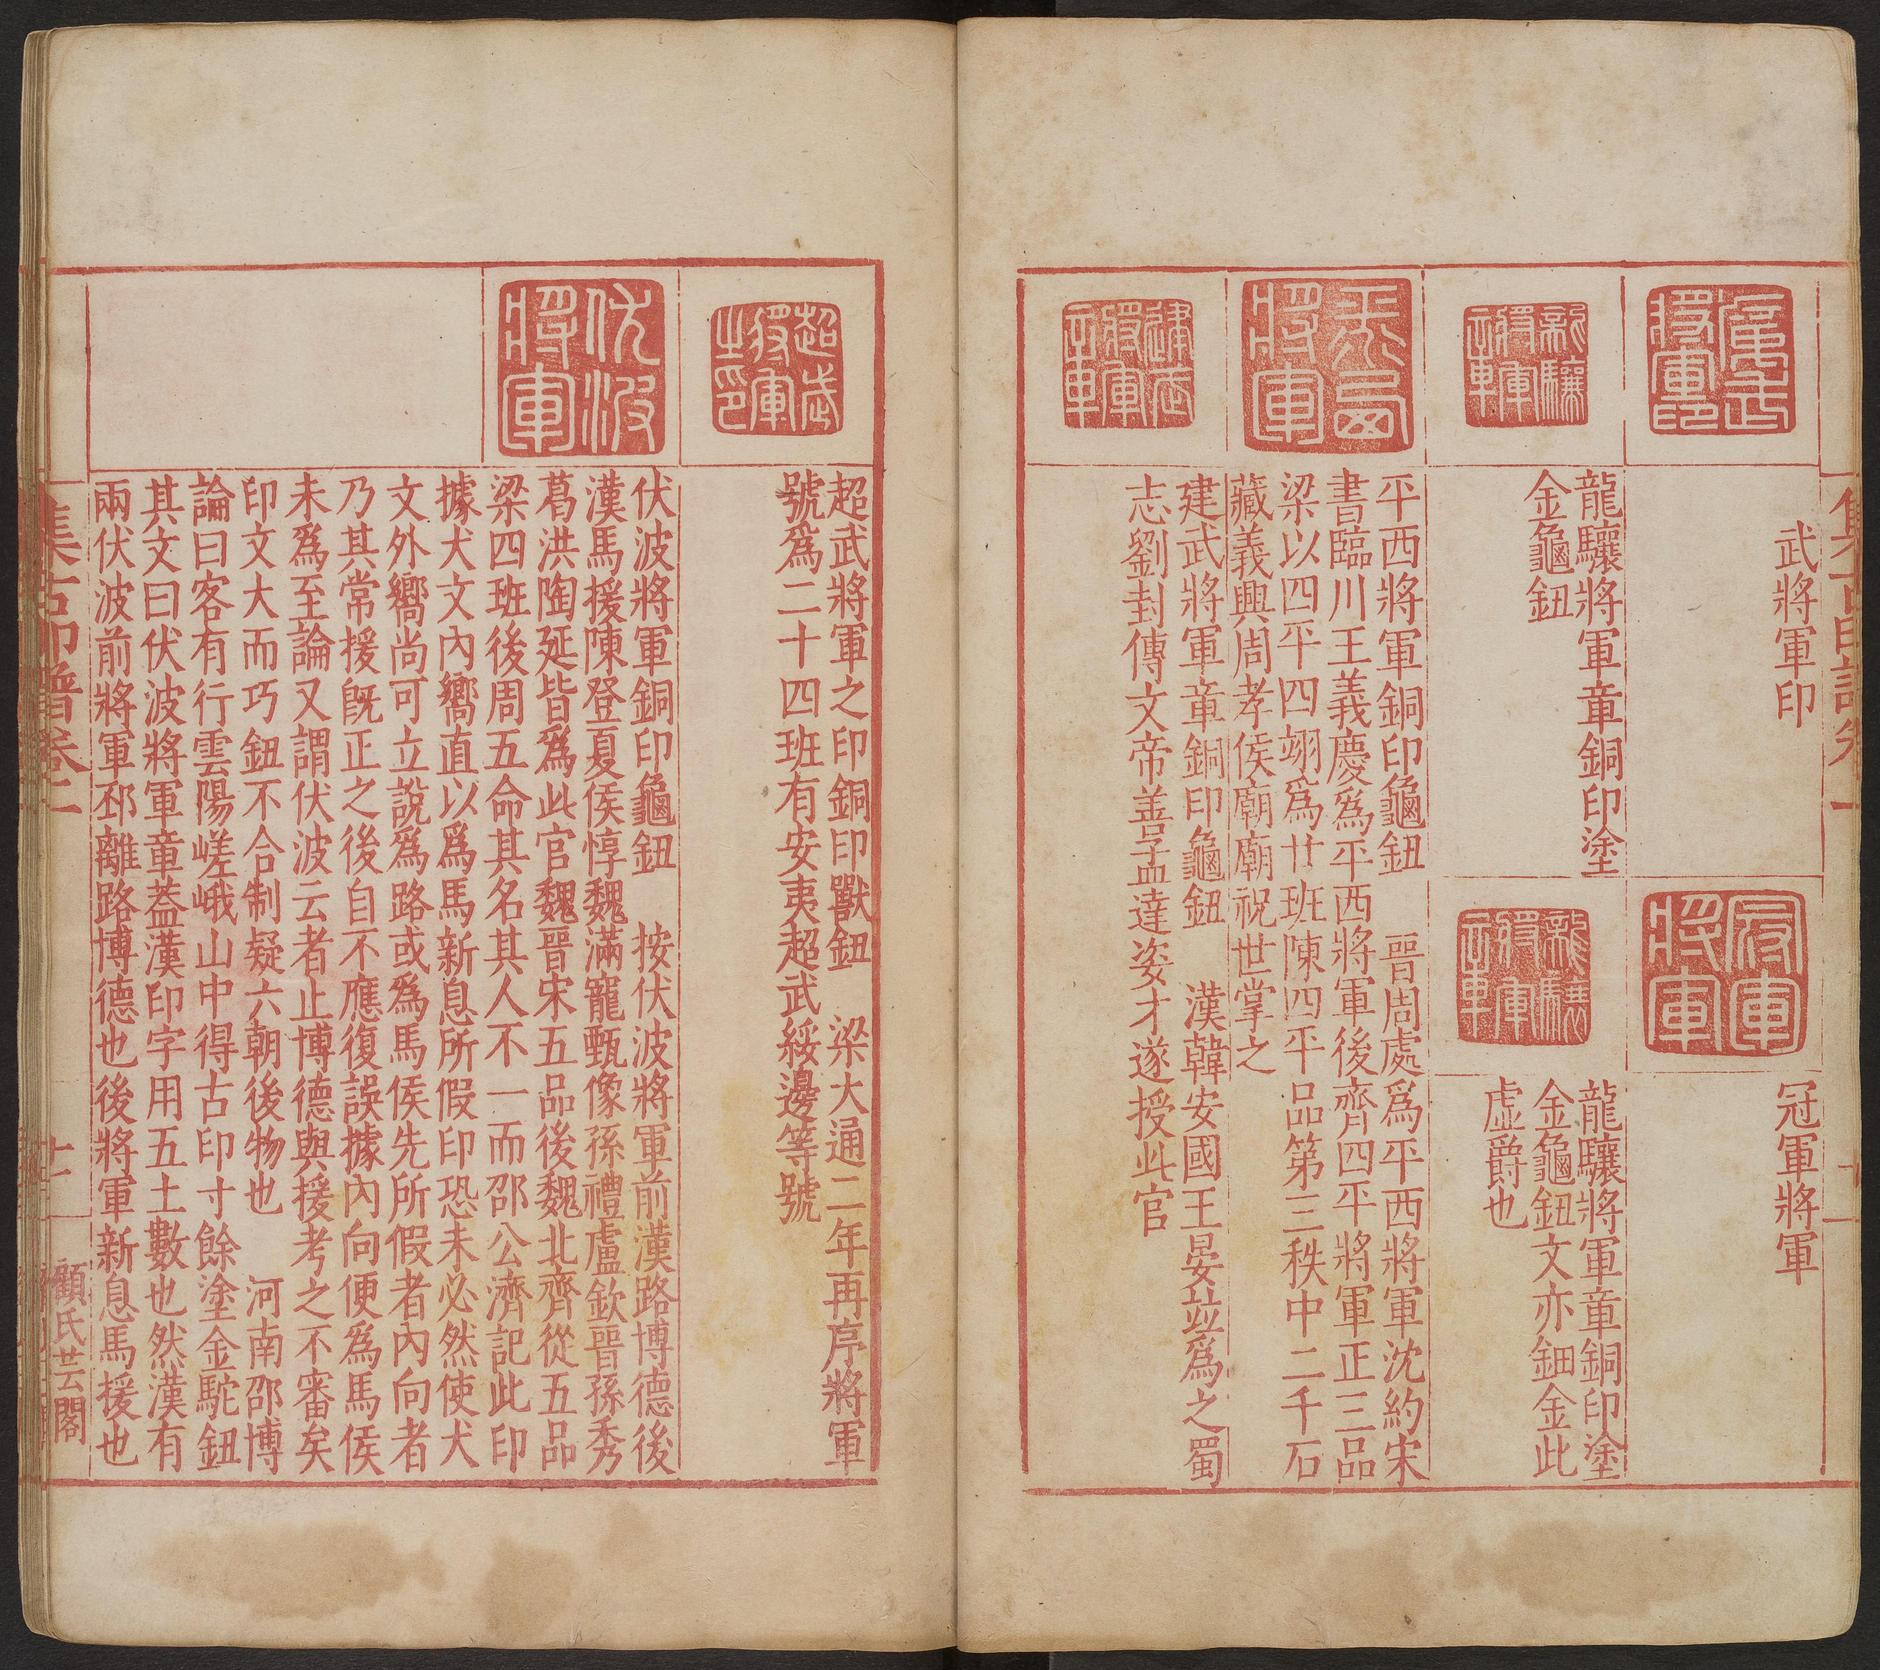 武將軍印
冠軍將軍
龍驤將軍章銅印塗
金龜鈕
龍驤將軍章銅印塗
金龜鈕文亦鈿金此
虛爵也
平西將軍
平西將軍銅印龜鈕　晉周處爲平西將軍沈約宋
書臨川王義慶爲平西將軍後齊四平將軍正三品
梁以四平四翊爲廿班陳四平品第三秩中二千石
藏義興周孝侯廟廟祝世掌之
建武將軍章
建武將軍章銅印龜鈕　漢韓安國王晏並爲之蜀
志劉封傳文帝善孟達姿才遂授此官
超武將軍之印
超武將軍之印銅印獸鈕　梁大通二年再序將軍
號爲二十四班有安夷超武綏邊等號
伏波將軍
伏波將軍銅印龜鈕　按伏波將軍前漢路博德後
漢馬援陳登夏侯惇魏滿寵甄像孫禮盧欽晉孫秀
葛洪陶延皆爲此官魏晉宋五品後魏北齊從五品
梁四班後周五命其名其人不一而邵公濟記此印
據犬文內嚮直以爲馬新息所假印恐未必然使犬
文外嚮尚可立說爲路或爲馬侯先所假者內向者
乃其常援旣正之後自不應復誤據內向便爲馬侯
未爲至論又謂伏波云者止博德與援考之不審矣
印文大而巧鈕不合制疑六朝後物也　河南邵博
論曰客有行雲陽嵯峨山中得古印寸餘塗金駝鈕
其文曰伏波將軍章蓋漢印字用五土數也然漢有
兩伏波前將軍邳離路博德也後將軍新息馬援也
集古印譜卷二
十一
顧氏芸閣